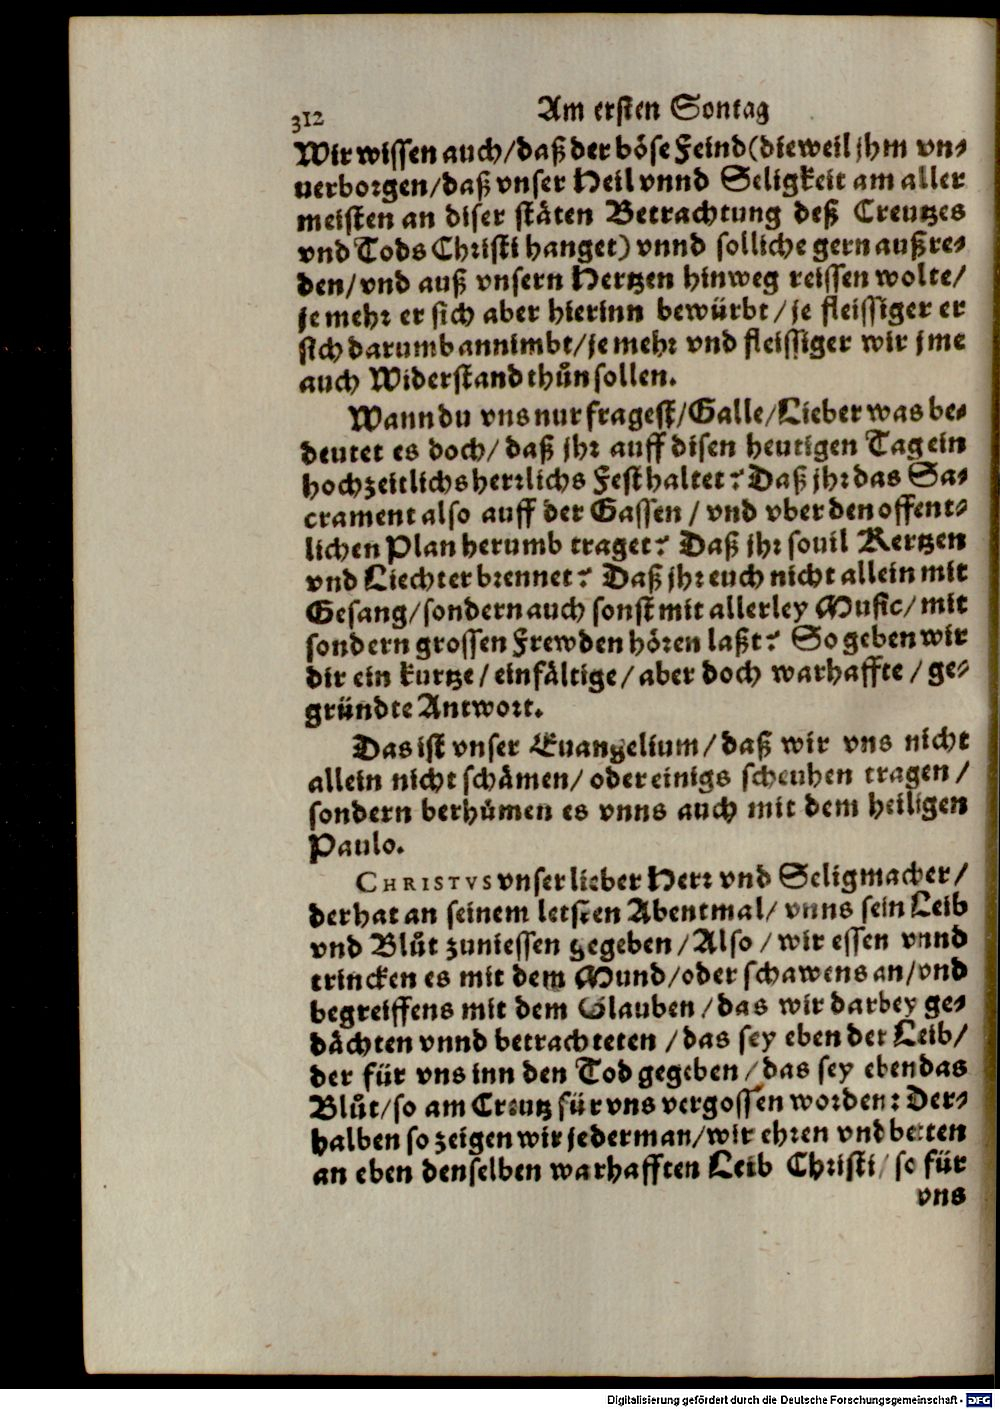 312 Am ersten Sontag
Wir wissen auch/daß der böse Feind (dieweil jhm vn-
uerborgen/daß vnser Heil vnnd Seligkeit am aller
meisten an diser stäten Betrachtung deß Creutzes
vnd Tods Christi hanget) vnnd solliche gern außre-
den/vnd auß vnsern Hertzen hinweg reissen wolte/
je mehr er sich aber hierinn bewürbt/je fleissiger er
sich darumb annimbt/je mehr vnd fleissiger wir jme
auch Widerstand thůn sollen.
Wann du vns nur fragest/Galle/Lieber was be-
deutet es doch/daß jhr auff disen heutigen Tag ein
hochzeitlichs herrlichs Fest haltet? Daß jhr das Sa-
crament also auff der Gassen/vnd vber den offent-
lichen Plan herumb traget? Daß jhr souil Kertzen
vnd Liechter brennet? Daß jhr euch nicht allein mit
Gesang/sondern auch sonst mit allerley Music/mit
sondern grossen Frewden hören laßt? So geben wir
dir ein kurtze/einfältige/aber doch warhaffte/ge-
gründte Antwort.
Das ist vnser Euangelium/daß wir vns nicht
allein nicht schämen/oder einigs scheuhen tragen/
sondern berhůmen es vnns auch mit dem heiligen
Paulo.
CHRISTVS vnser lieber Herr vnd Seligmacher/
der hat an seinem letsten Abentmal/vnns sein Leib
vnd Blůt zuniessen gegeben/Also/wir essen vnnd
trincken es mit dem Mund/oder schawens an/vnd
begreiffens mit dem Glauben/das wir darbey ge-
dächten vnnd betrachteten/das sey eben der Leib/
der für vns inn den Tod gegeben/das sey eben das
Blůt/so am Creutz für vns vergossen worden: Der-
halben so zeigen wir jederman/wir ehren vnd betten
an eben denselben warhafften Leib Christi/so für
vns
Digitalisierung gefördert durch die Deutsche Forschungsgemeinschaft - DFG